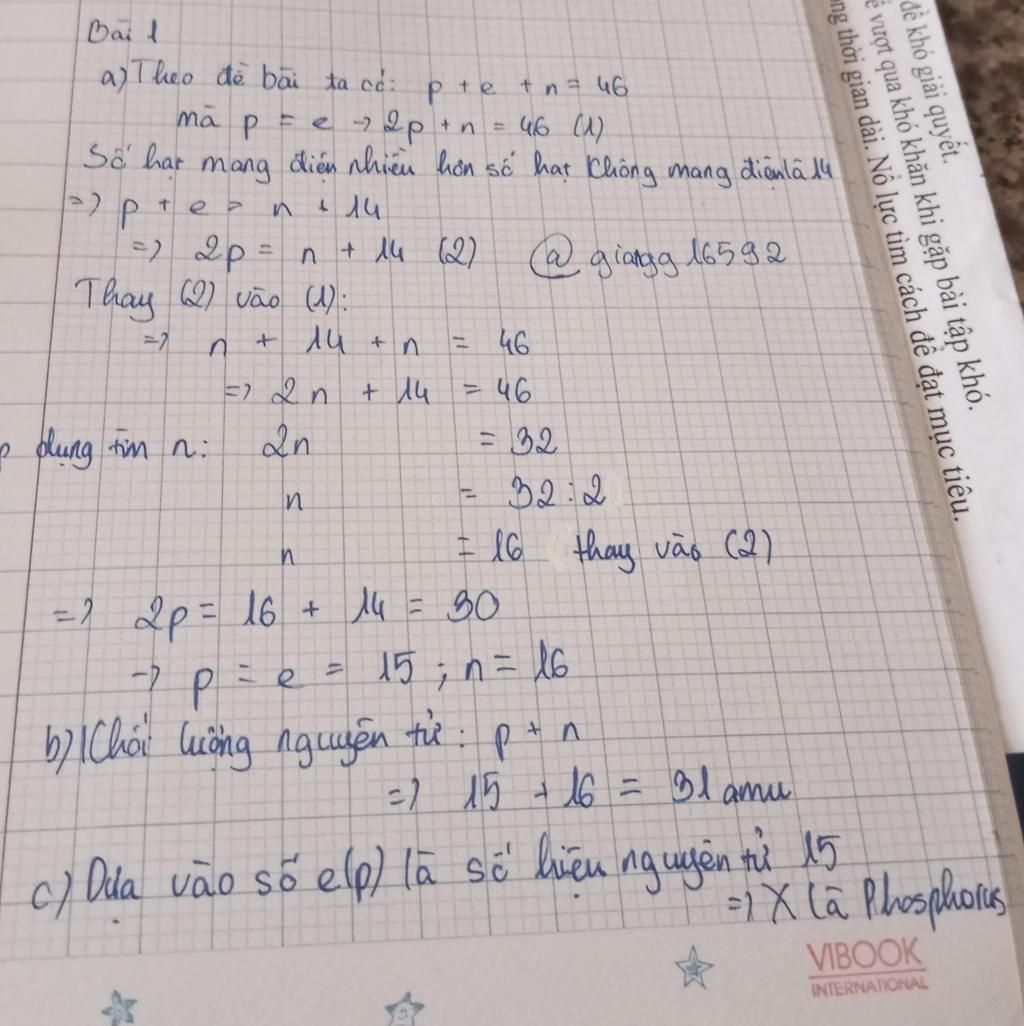 Bài 1
a) Theo đề bài ta có: p + e + n = 46
mà p = e → 2p + n = 46 (1)
Số hạt mang điện nhiều hơn số hạt không mang điện là 14
=> p + e = n + 14
=> 2p = n + 14 (2) @giangg16592
Thay (2) vào (1):
=> n + 14 + n = 46
=> 2n + 14 = 46
dụng tìm n: 2n = 32
n = 32 : 2
n = 16 thay vào (2)
=> 2p = 16 + 14 = 30
→ p = e = 15 ; n = 16
b) Khối lượng nguyên tử: p + n
=> 15 + 16 = 31 amu
c) Dựa vào số e(p) là số hiệu nguyên tử 15
=> X là Phosphorus
VIBOOK
INTERNATIONAL
đề khó giải quyết.
ể vượt qua khó khăn khi gặp bài tập khó.
ng thời gian dài. Nỗ lực tìm cách để đạt mục tiêu.